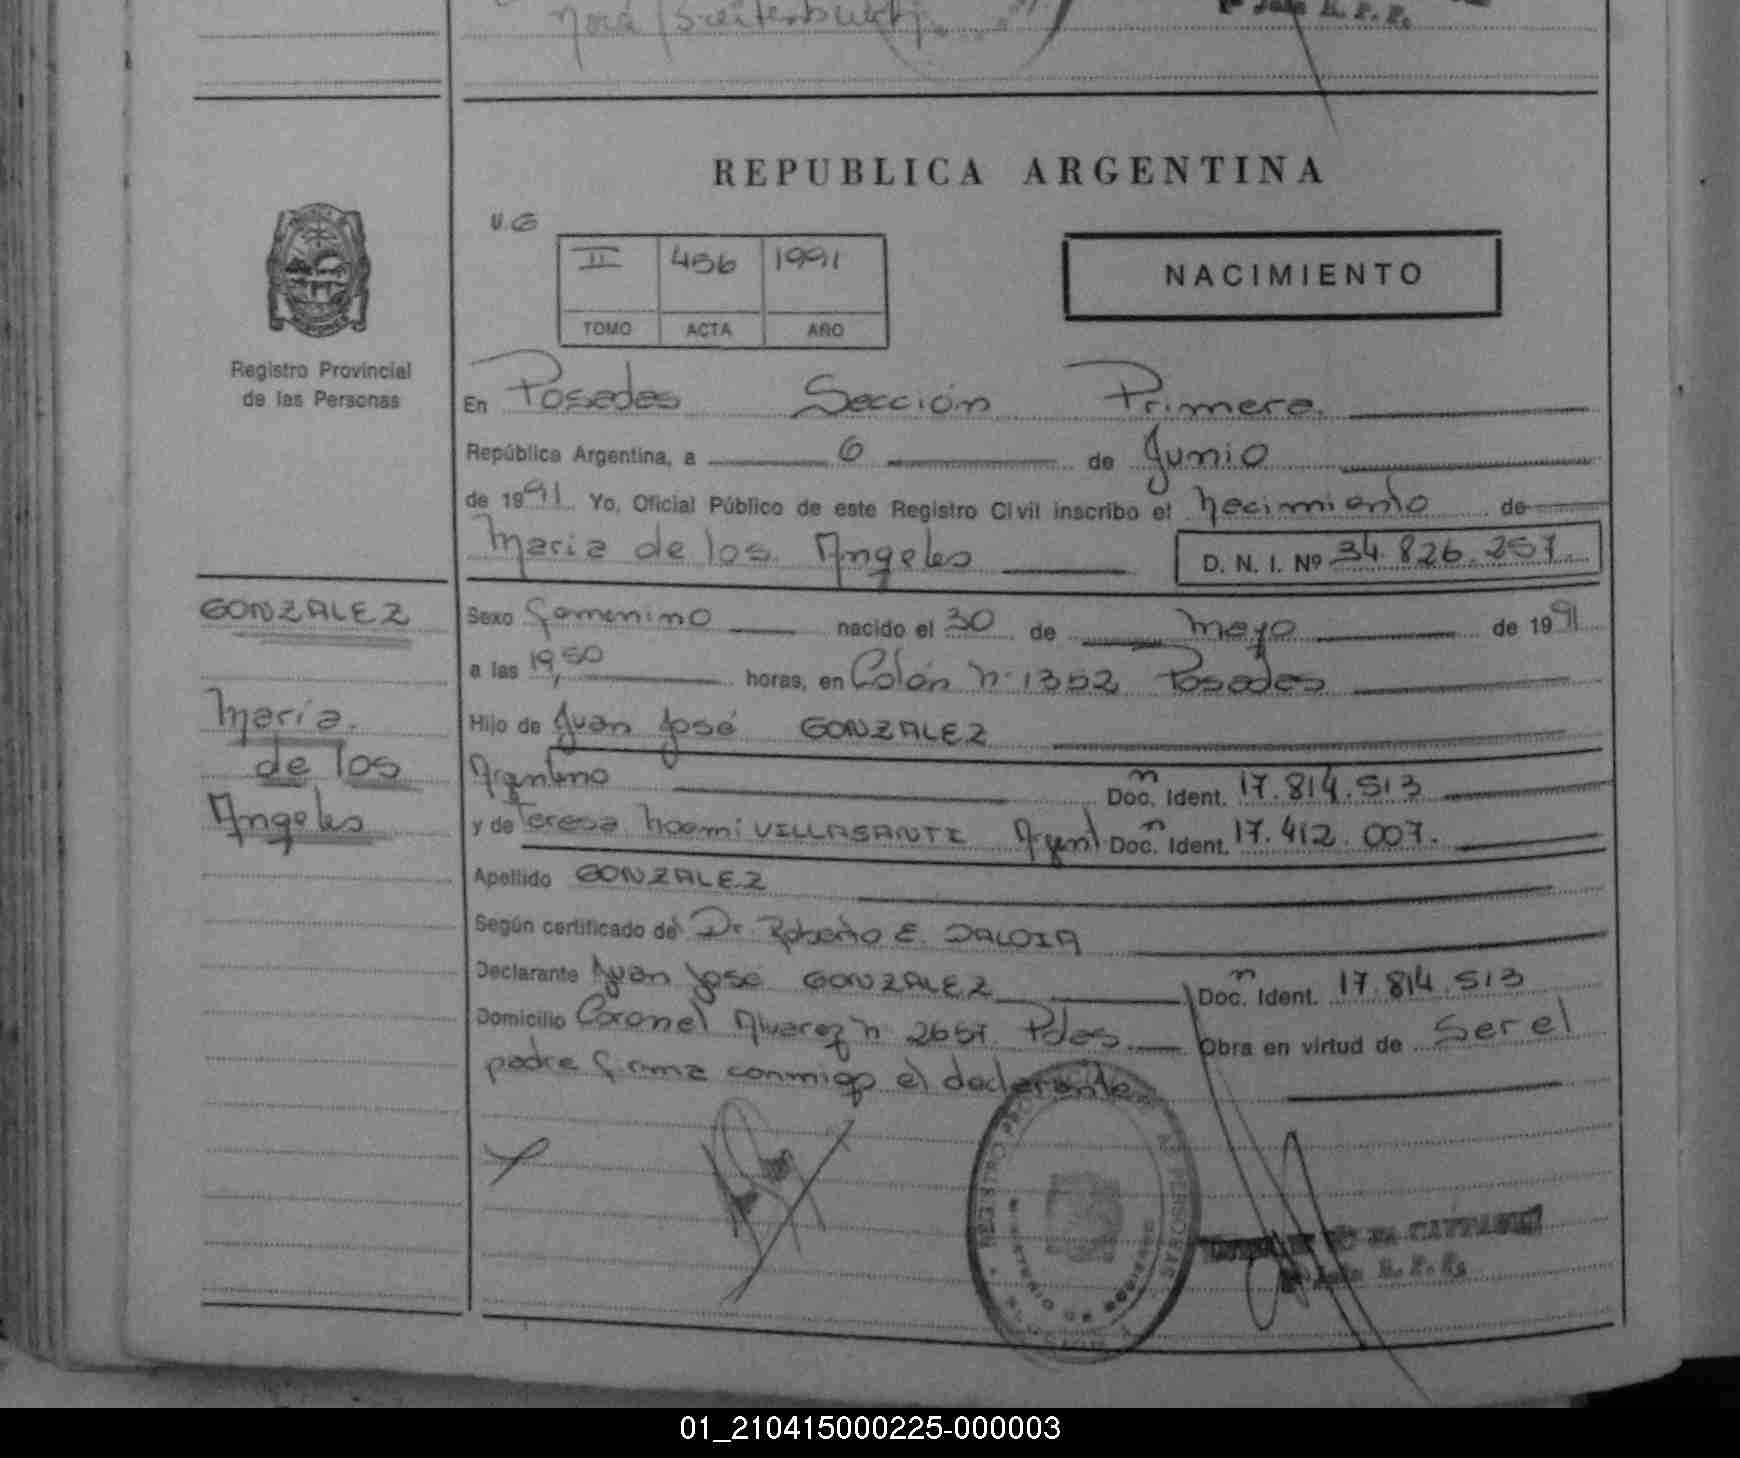 Nora
Jefe R. P. P.
REPUBLICA ARGENTINA
U.G
II 456 1991
TOMO ACTA AÑO
NACIMIENTO
Registro Provincial
de las Personas
En Posadas Sección Primera
República Argentina, a 6 de Junio
de 1991 Yo, Oficial Público de este Registro Civil inscribo el nacimiento de
Maria de los Angeles D. N. I. Nº 34.826.257
GONZALEZ
María
de los
Angeles
Sexo femenino nacido el 30 de mayo de 1991
a las 19,50 horas, en Colón n. 1352 Posadas
Hijo de Juan José GONZALEZ
Argentino Doc. Ident. n 17.814.513
y de Teresa Noemi VILLASANTE Argent. Doc. Ident. n 17.412.007.
Apellido GONZALEZ
Según certificado de Dr. Roberto E. DALOIA
Declarante Juan José GONZALEZ Doc. Ident. n 17.814.513
Domicilio Coronel Alvarez n 2657 Pdas. Obra en virtud de Ser el
padre firma conmigo el declarante
Jefe R. P. P.
01_210415000225-000003